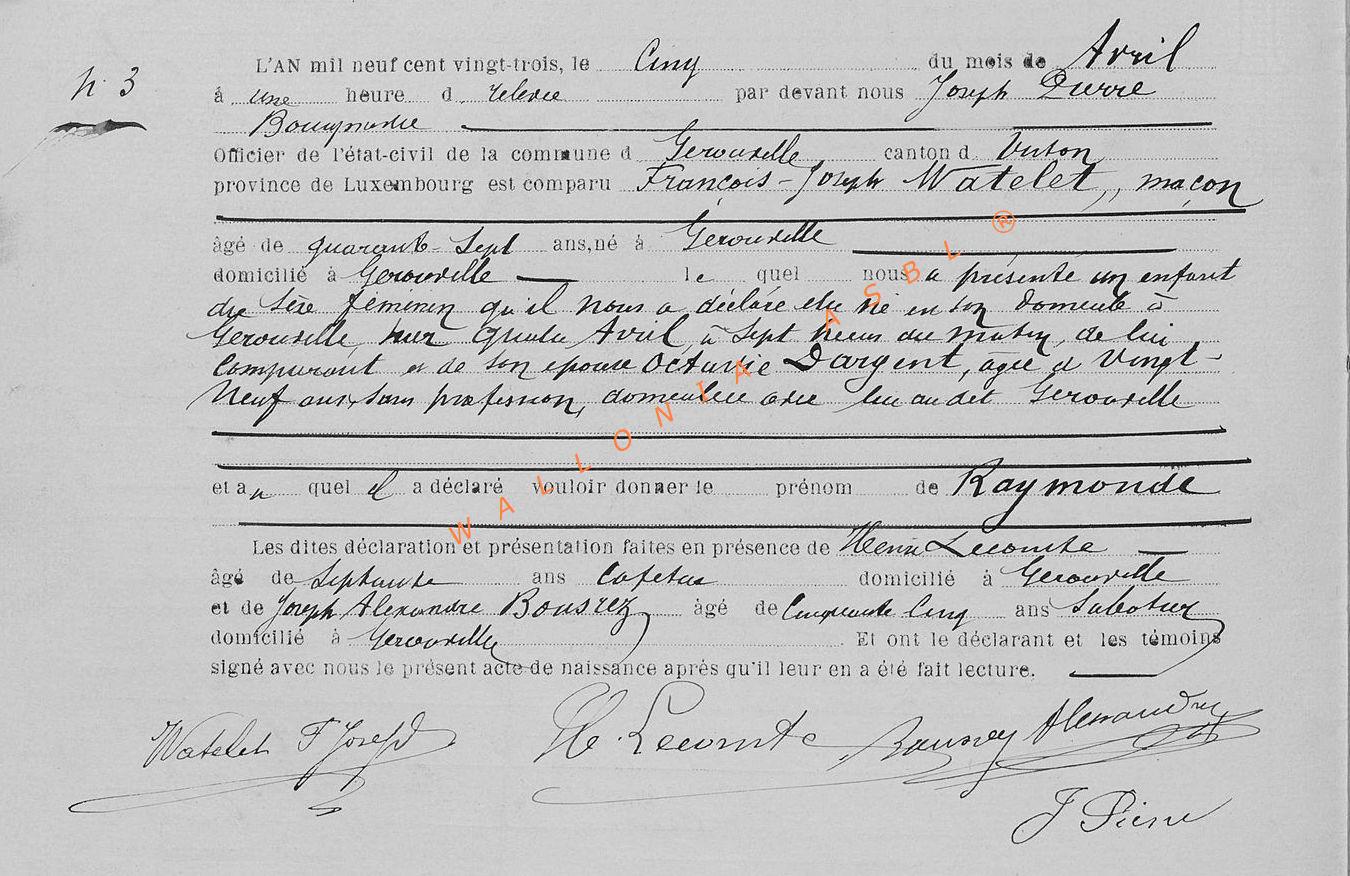 n. 3
L'AN mil neuf cent vingt-trois, le Cinq du mois de Avril
à une heure d relevée par devant nous Joseph Pierre
Bourgmestre
Officier de l'état-civil de la commune d Gérouville canton d Virton
province de Luxembourg est comparu François-Joseph Watelet, maçon
âgé de quarante-Sept ans, né à Gérouville
domicilié à Gérouville le quel nous a présenté un enfant
du Sexe féminin qu'il nous a déclaré être né en son domicile à
Gérouville hier quatre Avril, à Sept heures du matin, de lui
Comparant et de son épouse Octavie Dargent, âgée de Vingt-
Neuf ans, sans profession, domiciliée avec lui audit Gérouville
et au quel il a déclaré vouloir donner le prénom de Raymonde
Les dites déclaration et présentation faites en présence de Henri Lecomte
âgé de Septante ans Cafetier domicilié à Gérouville
et de Joseph Alexandre Bousrez âgé de Cinquante Cinq ans Sabotier
domicilié à Gérouville Et ont le déclarant et les témoins
signé avec nous le présent acte de naissance après qu'il leur en a été fait lecture.
Watelet F Joseph H. Lecomte Bousrez Alexandre
J Pierre
WALLONIA ASBL ®